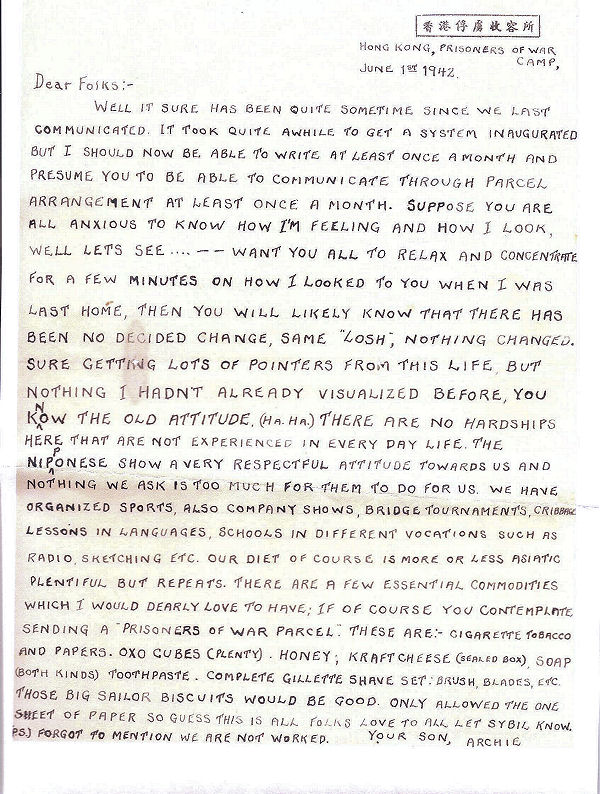 香港俘虜收容所
HONG KONG, PRISONERS OF WAR
CAMP,
JUNE 1ST 1942.
Dear Folks:-
WELL IT SURE HAS BEEN QUITE SOMETIME SINCE WE LAST
COMMUNICATED. IT TOOK QUITE AWHILE TO GET A SYSTEM INAUGURATED
BUT I SHOULD NOW BE ABLE TO WRITE AT LEAST ONCE A MONTH AND
PRESUME YOU TO BE ABLE TO COMMUNICATE THROUGH PARCEL
ARRANGEMENT AT LEAST ONCE A MONTH. SUPPOSE YOU ARE
ALL ANXIOUS TO KNOW HOW I'M FEELING AND HOW I LOOK,
WELL LETS SEE .... -- WANT YOU ALL TO RELAX AND CONCENTRATE
FOR A FEW MINUTES ON HOW I LOOKED TO YOU WHEN I WAS
LAST HOME, THEN YOU WILL LIKELY KNOW THAT THERE HAS
BEEN NO DECIDED CHANGE, SAME "LOSH", NOTHING CHANGED.
SURE GETTING LOTS OF POINTERS FROM THIS LIFE, BUT
NOTHING I HADN'T ALREADY VISUALIZED BEFORE, YOU
KNOW THE OLD ATTITUDE, (HA. HA.) THERE ARE NO HARDSHIPS
HERE THAT ARE NOT EXPERIENCED IN EVERY DAY LIFE. THE
NIPPONESE SHOW A VERY RESPECTFUL ATTITUDE TOWARDS US AND
NOTHING WE ASK IS TOO MUCH FOR THEM TO DO FOR US. WE HAVE
ORGANIZED SPORTS, ALSO COMPANY SHOWS, BRIDGE TOURNAMENTS, CRIBBAGE
LESSONS IN LANGUAGES, SCHOOLS IN DIFFERENT VOCATIONS SUCH AS
RADIO, SKETCHING ETC. OUR DIET OF COURSE IS MORE OR LESS ASIATIC
PLENTIFUL BUT REPEATS. THERE ARE A FEW ESSENTIAL COMMODITIES
WHICH I WOULD DEARLY LOVE TO HAVE; IF OF COURSE YOU CONTEMPLATE
SENDING A "PRISONERS OF WAR PARCEL". THESE ARE:- CIGARETTE TOBACCO
AND PAPERS. OXO CUBES (PLENTY). HONEY; KRAFT CHEESE (SEALED BOX), SOAP
(BOTH KINDS) TOOTHPASTE. COMPLETE GILLETTE SHAVE SET: BRUSH, BLADES, ETC.
THOSE BIG SAILOR BISCUITS WOULD BE GOOD. ONLY ALLOWED THE ONE
SHEET OF PAPER SO GUESS THIS IS ALL FOLKS LOVE TO ALL LET SYBIL KNOW.
PS.) FORGOT TO MENTION WE ARE NOT WORKED. YOUR SON, ARCHIE